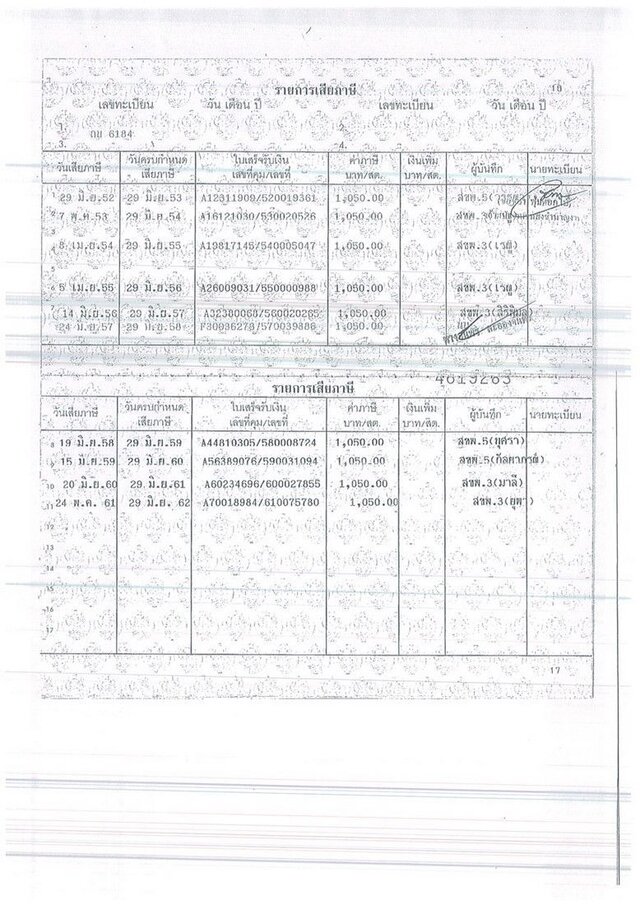 16
รายการเสียภาษี
เลขทะเบียน วัน เดือน ปี เลขทะเบียน วัน เดือน ปี
1. ถม 6184 2.
3. 4.
วันเสียภาษี วันครบกำหนดเสียภาษี ใบเสร็จรับเงิน เลขที่คุม/เลขที่ ค่าภาษี บาท/สต. เงินเพิ่ม บาท/สต. ผู้บันทึก นายทะเบียน
1 29 มิ.ย.52 29 มิ.ย.53 A12311909/520019361 1,050.00 สขพ.5
2 7 พ.ค.53 29 มิ.ย.54 A16121030/530020526 1,050.00 สขพ.3
4 8 เม.ย.54 29 มิ.ย.55 A19817145/540005047 1,050.00 สขพ.3(เรณู)
5
6 5 เม.ย.55 29 มิ.ย.56 A26009031/550000988 1,050.00 สขพ.3(เรณู)
14 มิ.ย.56 29 มิ.ย.57 A32380068/560020265 1,050.00 สขพ.3
24 มิ.ย.57 29 มิ.ย.58 F30036278/570039886 1,050.00
4619263
รายการเสียภาษี
วันเสียภาษี วันครบกำหนดเสียภาษี ใบเสร็จรับเงิน เลขที่คุม/เลขที่ ค่าภาษี บาท/สต. เงินเพิ่ม บาท/สต. ผู้บันทึก นายทะเบียน
8 19 มิ.ย.58 29 มิ.ย.59 A44810305/580008724 1,050.00 สขพ.5(ยุศรา)
9 15 มี.ย.59 29 มิ.ย.60 A56389076/590031094 1,050.00 สขพ.5(กัลยาภรณ์)
10 20 มิ.ย.60 29 มิ.ย.61 A60234696/600027855 1,050.00 สขพ.3(มาลี)
11 24 พ.ค. 61 29 มิ.ย. 62 A70018984/610075780 1,050.00 สขพ.3(ยุพา)
12
13
14
15
16
17
17